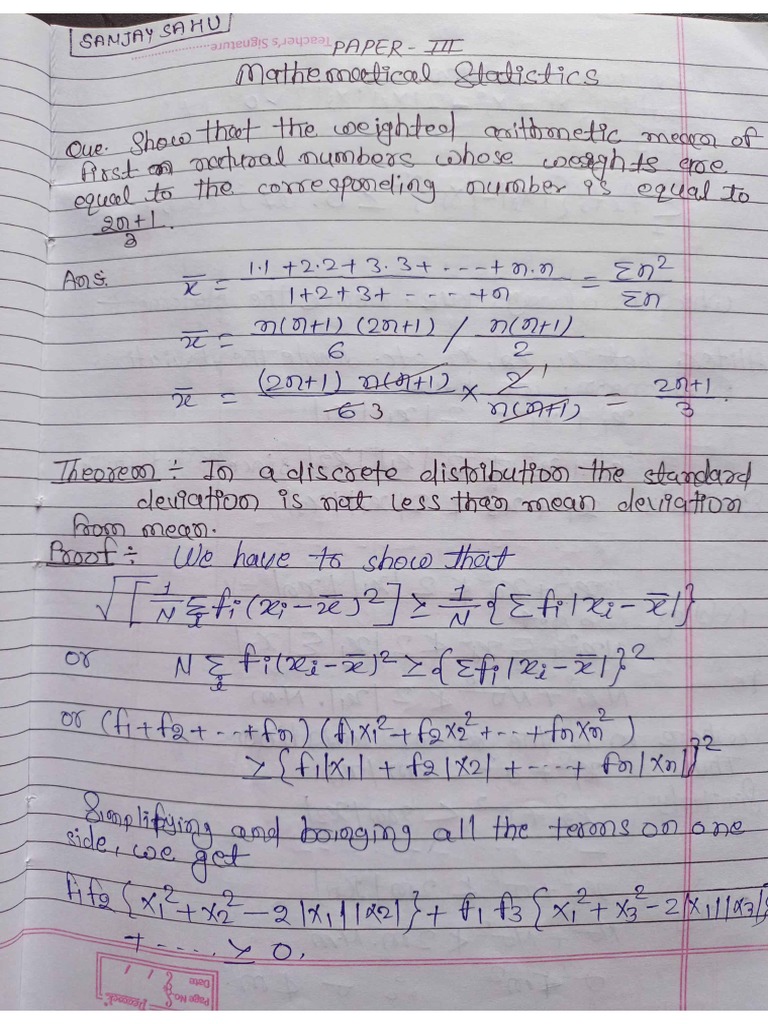 SANJAY SAHU
Teacher's Signature
PAPER - III
Mathematical Statistics
Que. Show that the weighted arithmetic mean of
first n natural numbers whose weights are
equal to the corresponding number is equal to
(2n+1)/3.
Ans. x̄ = (1.1 + 2.2 + 3.3 + ---- + n.n)/(1+2+3+ - --- +n) = Σn²/Σn
x̄ = n(n+1)(2n+1)/6 / n(n+1)/2
x̄ = (2n+1) n(n+1)/6 3 × 2 1/n(n+1) = (2n+1)/3.
Theorem ÷ In a discrete distribution the standard
deviation is not less than mean deviation
from mean.
Proof ÷ We have to show that
√[1/N Σi fi(xi - x̄)²] ≥ 1/N {Σ fi|xi - x̄|}
or N Σi fi(xi - x̄)² ≥ {Σfi|xi - x̄|}²
or (f1+f2+---+fn)(f1X1²+f2X2²+---+fnXn²)
≥ {f1|X1| + f2|X2| + ---- + fn|Xn|}²
Simplifying and bringing all the terms on one
side, we get
f1f2 {X1²+X2²-2|X1||X2|} + f1f3 {X1²+X3²-2|X1||X3|}
+ ---- ≥ 0.
Page No.
Date